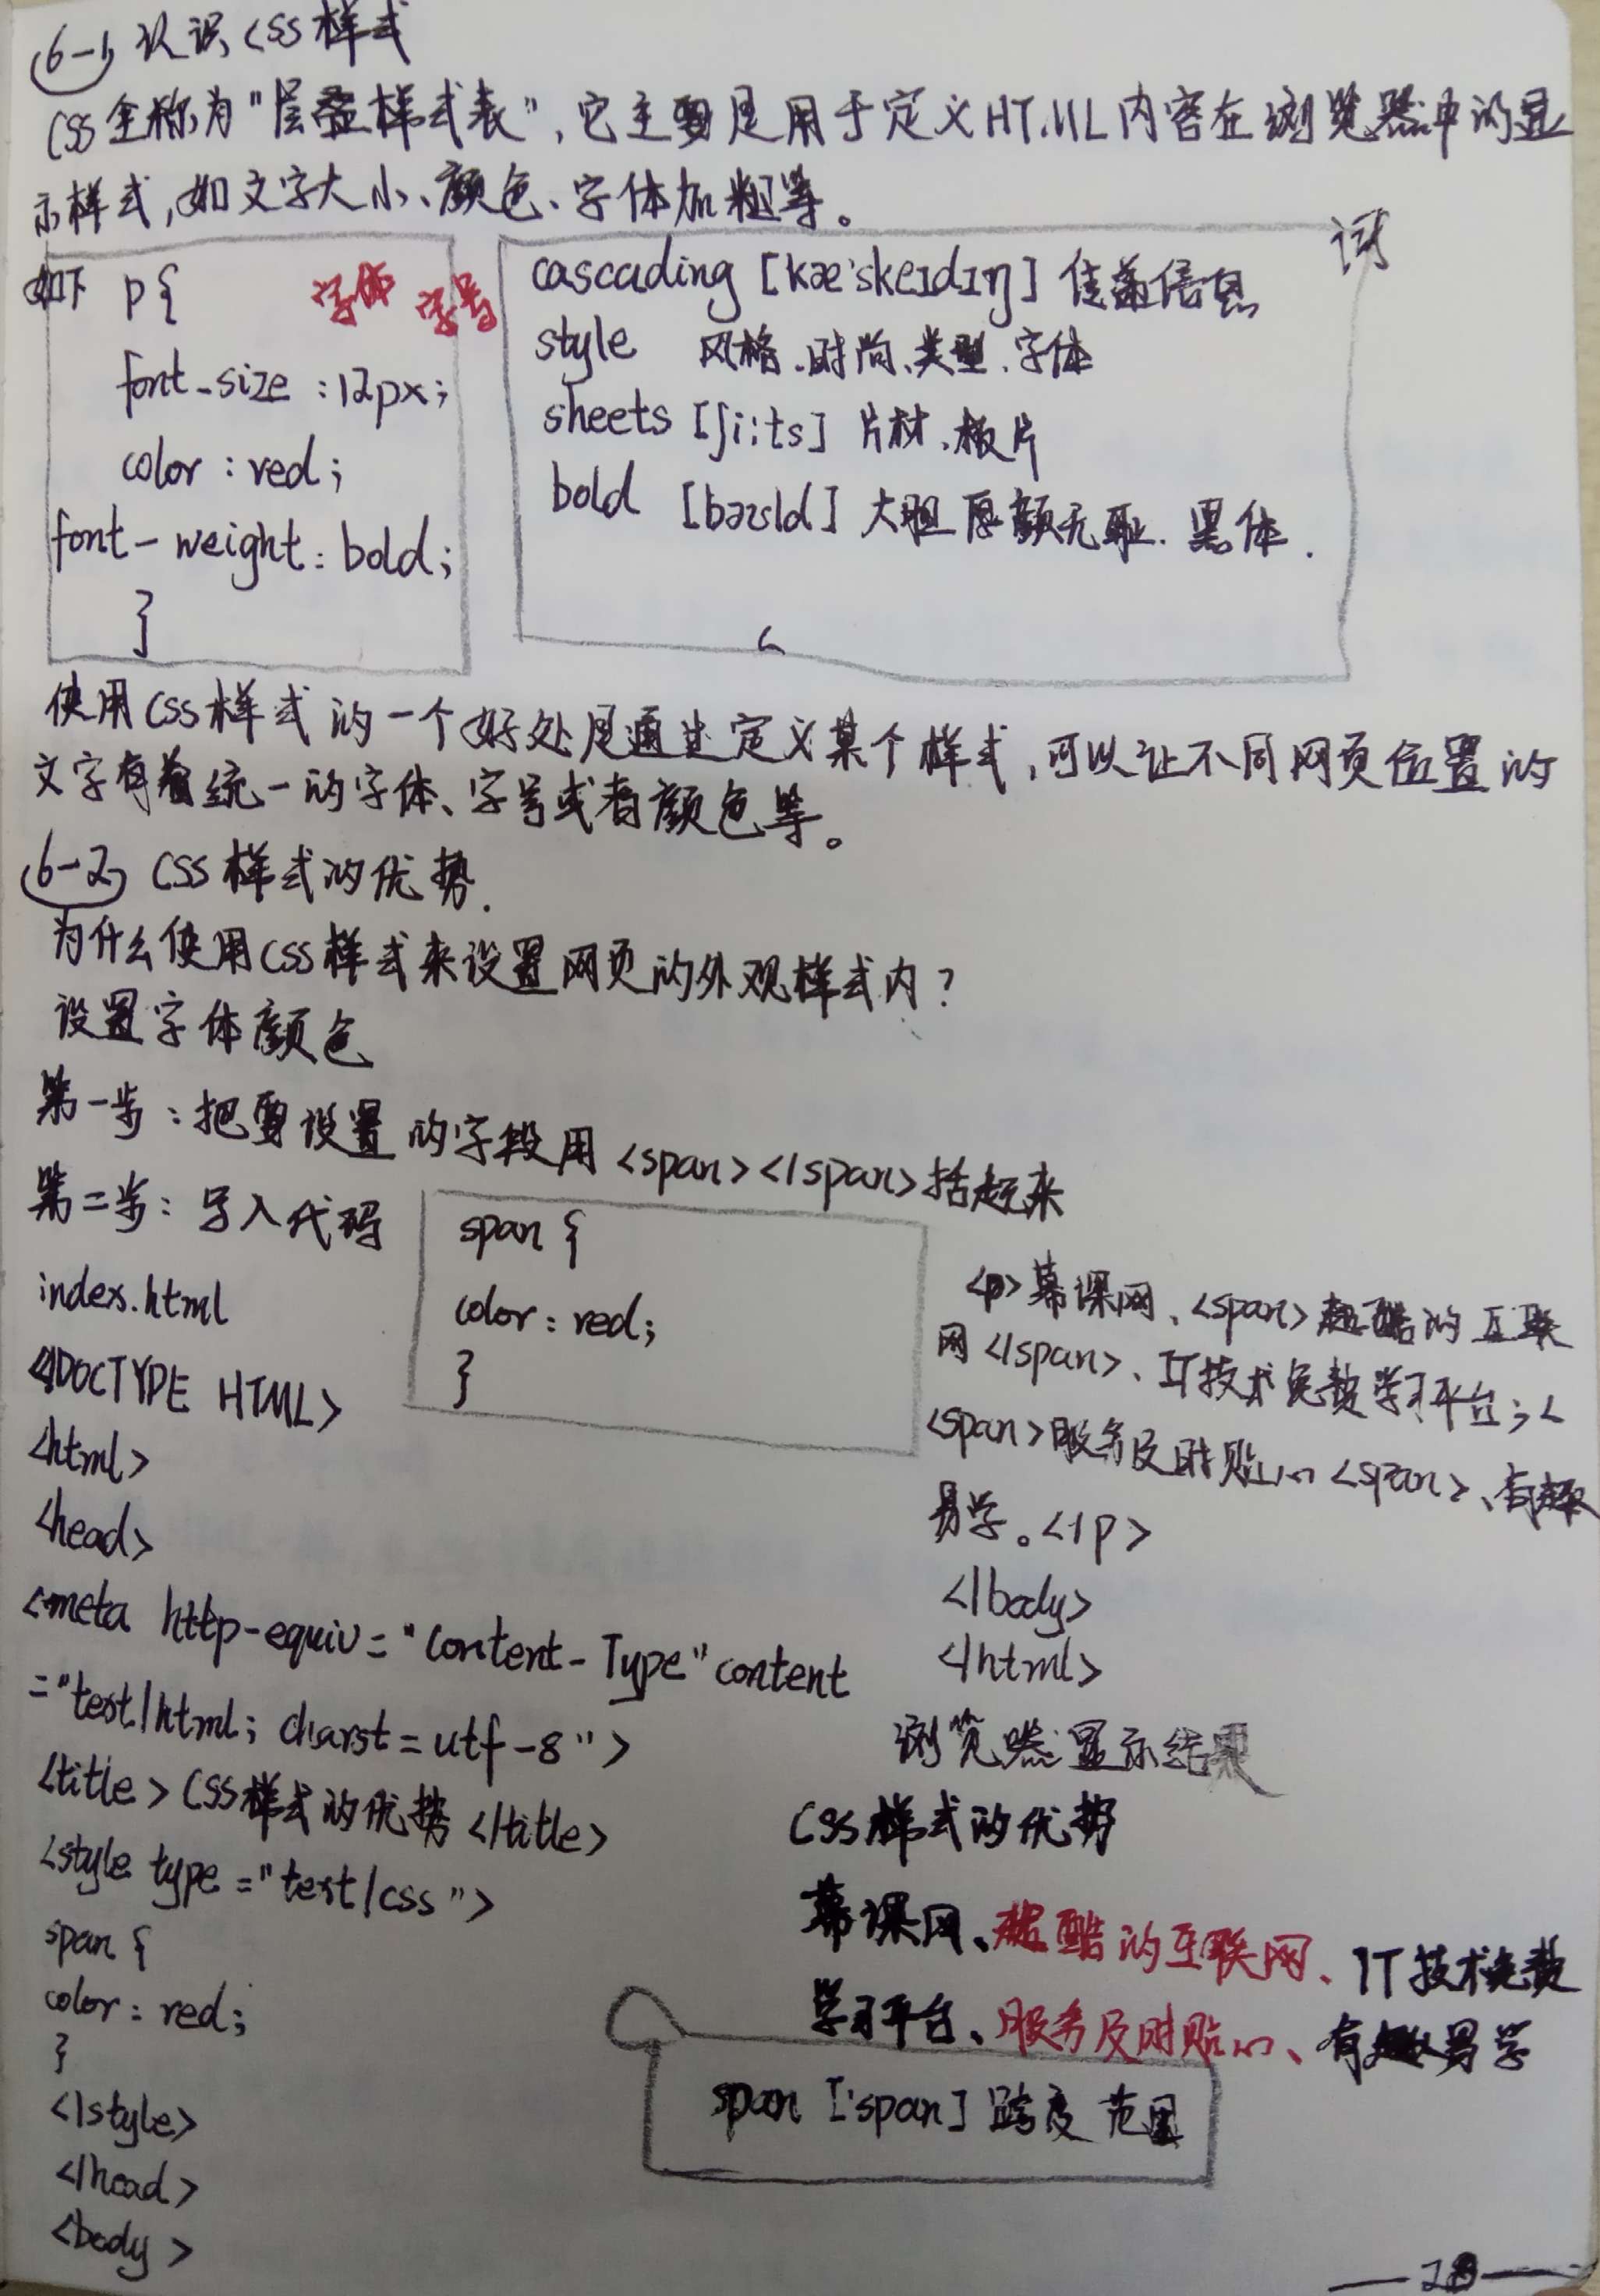 6-1 认识CSS样式
CSS全称为"层叠样式表",它主要是用于定义HTML内容在浏览器中的显
示样式,如文字大小、颜色、字体加粗等。
如下 p{
字体 字号
font-size:12px;
color:red;
font-weight:bold;
}
词
cascading [kæ'skeɪdɪŋ] 传递信息
style 风格.时尚、类型.字体
sheets [ʃi:ts] 片材、板片
bold [bəʊld] 大胆 厚颜无耻. 黑体.
使用CSS样式的一个好处是通过定义某个样式,可以让不同网页位置的
文字有着统一的字体、字号或者颜色等。
6-2 CSS样式的优势.
为什么使用CSS样式来设置网页的外观样式内?
设置字体颜色
第一步:把要设置的字段用<span></span>括起来
第二步:写入代码
span {
color:red;
}
index.html
<!DOCTYPE HTML>
<html>
<head>
<meta http-equiv="Content-Type" content
="text/html; charst=utf-8">
<title>CSS样式的优势</title>
<style type="text/css">
span {
color:red;
}
</style>
</head>
<body>
<p>慕课网、<span>超酷的互联
网</span>、IT技术免费学习平台;<
span>服务及时贴心<span>、有趣
易学。</p>
</body>
</html>
浏览器显示结果
CSS样式的优势
慕课网、超酷的互联网、IT技术免费
学习平台、服务及时贴心、有趣易学
span ['span] 跨度 范围